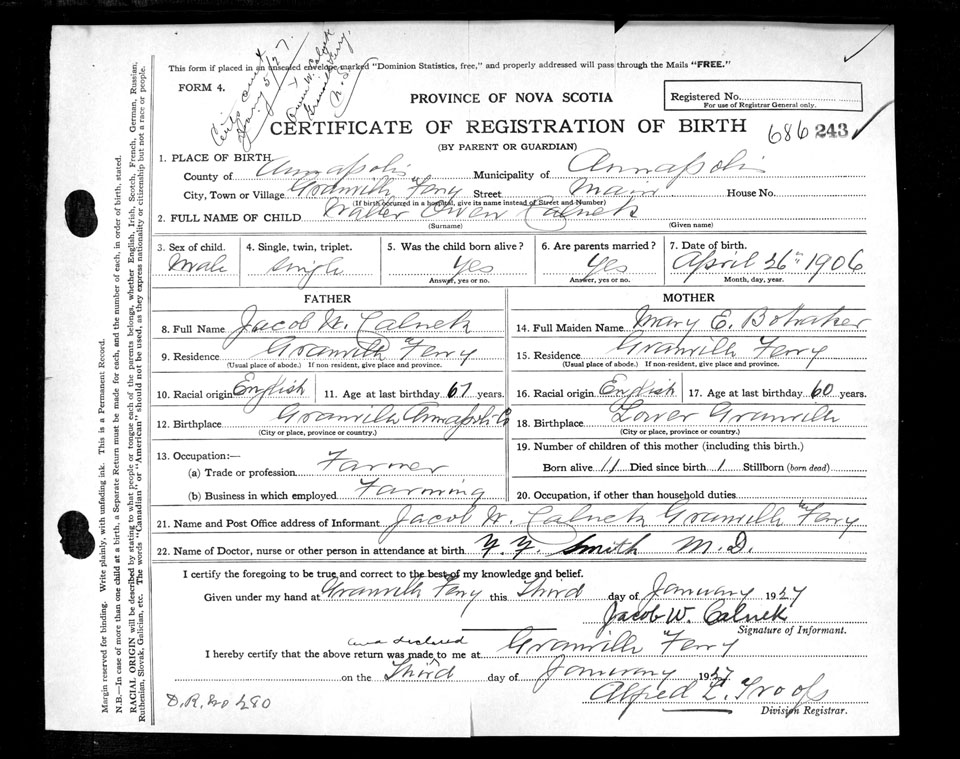 Certs sent Jany 5/27.
Owen W. Calnek
N.S.
This form if placed in an unsealed envelope marked "Dominion Statistics, free," and properly addressed will pass through the Mails "FREE."
FORM 4.
PROVINCE OF NOVA SCOTIA
Registered No.
For use of Registrar General only.
CERTIFICATE OF REGISTRATION OF BIRTH
686 243
(BY PARENT OR GUARDIAN)
1. PLACE OF BIRTH
County of Annapolis Municipality of Annapolis
City, Town or Village Granville Ferry Street Main House No.
(If birth occurred in a hospital, give its name instead of Street and Number)
2. FULL NAME OF CHILD Walter Owen Calnek
(Surname) (Given name)
3. Sex of child. 4. Single, twin, triplet. 5. Was the child born alive? 6. Are parents married? 7. Date of birth.
Male single yes yes April 26th 1906
Answer, yes or no. Answer, yes or no. Month, day, year.
FATHER MOTHER
8. Full Name Jacob W. Calnek 14. Full Maiden Name Mary E. Bohaker
9. Residence Granville Ferry 15. Residence Granville Ferry
(Usual place of abode.) If non-resident, give place and province. (Usual place of abode.) If non-resident, give place and province.
10. Racial origin English 11. Age at last birthday 67 years. 16. Racial origin English 17. Age at last birthday 60 years.
12. Birthplace Granville Annapolis Co 18. Birthplace Lower Granville
(City or place, province or country.) (City or place, province or country.)
13. Occupation:— 19. Number of children of this mother (including this birth).
(a) Trade or profession Farmer Born alive 11 Died since birth 1 Stillborn (born dead)
(b) Business in which employed Farming 20. Occupation, if other than household duties
21. Name and Post Office address of Informant Jacob W. Calnek Granville Ferry
22. Name of Doctor, nurse or other person in attendance at birth F. F. Smith M.D.
I certify the foregoing to be true and correct to the best of my knowledge and belief.
Given under my hand at Granville Ferry this Third day of January 1927
Jacob W. Calnek
Signature of Informant.
and declared
I hereby certify that the above return was made to me at Granville Ferry
on the Third day of January 1927
Alfred L. Troop
D.R. No 280
Division Registrar.
Margin reserved for binding. Write plainly, with unfading ink. This is a Permanent Record.
N.B.—In case of more than one child at a birth, a Separate Return must be made for each, and the number of each, in order of birth, stated.
RACIAL ORIGIN will be described by stating to what people or tongue each of the parents belongs, whether English, Irish, Scotch, French, German, Russian,
Ruthenian, Slovak, Galician, etc. The words "Canadian" or "American" should not be used, as they express nationality or citizenship but not a race or people.